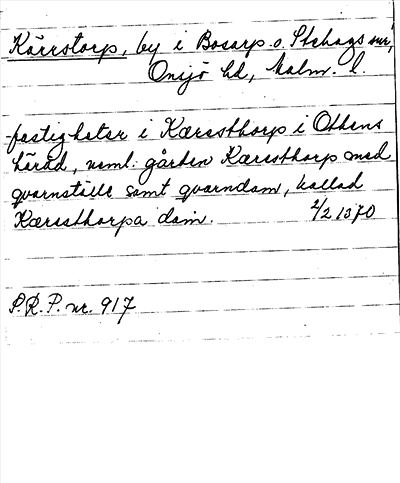 Kärrstorp, by i Bosarp o. Stehags snr,
Onsjö hd, Malm. l.
fastigheter i Kæresthorp i Othens
härad, naml. gården Kæresthorp med
qvarnställe samt qvarndam, kallad
Kæresthorpa dam. 2/2 1370
P.R.P. nr. 917